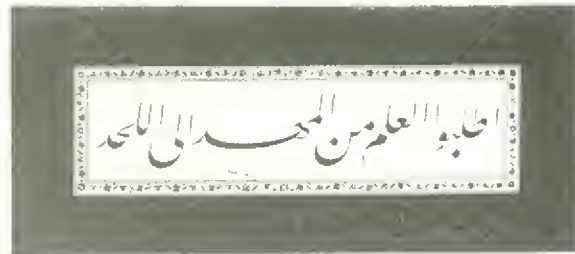 اطلبوا العلم من المهد الى اللحد